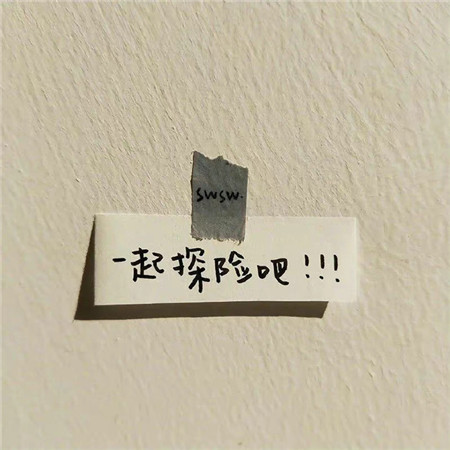 swsw.
一起探险吧!!!